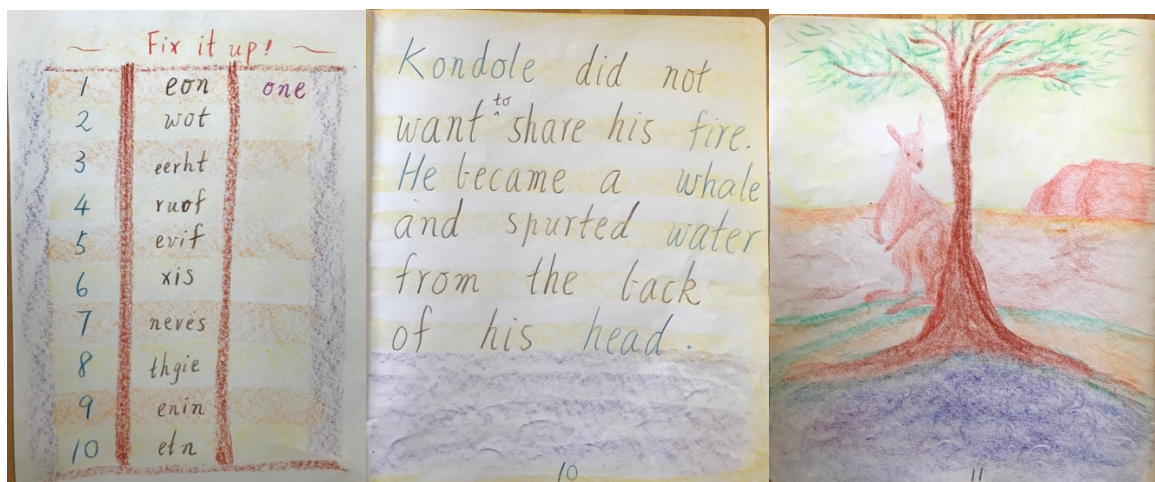 Fix it up!
1 eon one
2 wot
3 eerht
4 ruof
5 evif
6 xis
7 neves
8 thgie
9 enin
10 etn
Kondole did not
want to share his fire.
He became a whale
and spurted water
from the back
of his head.
10
11